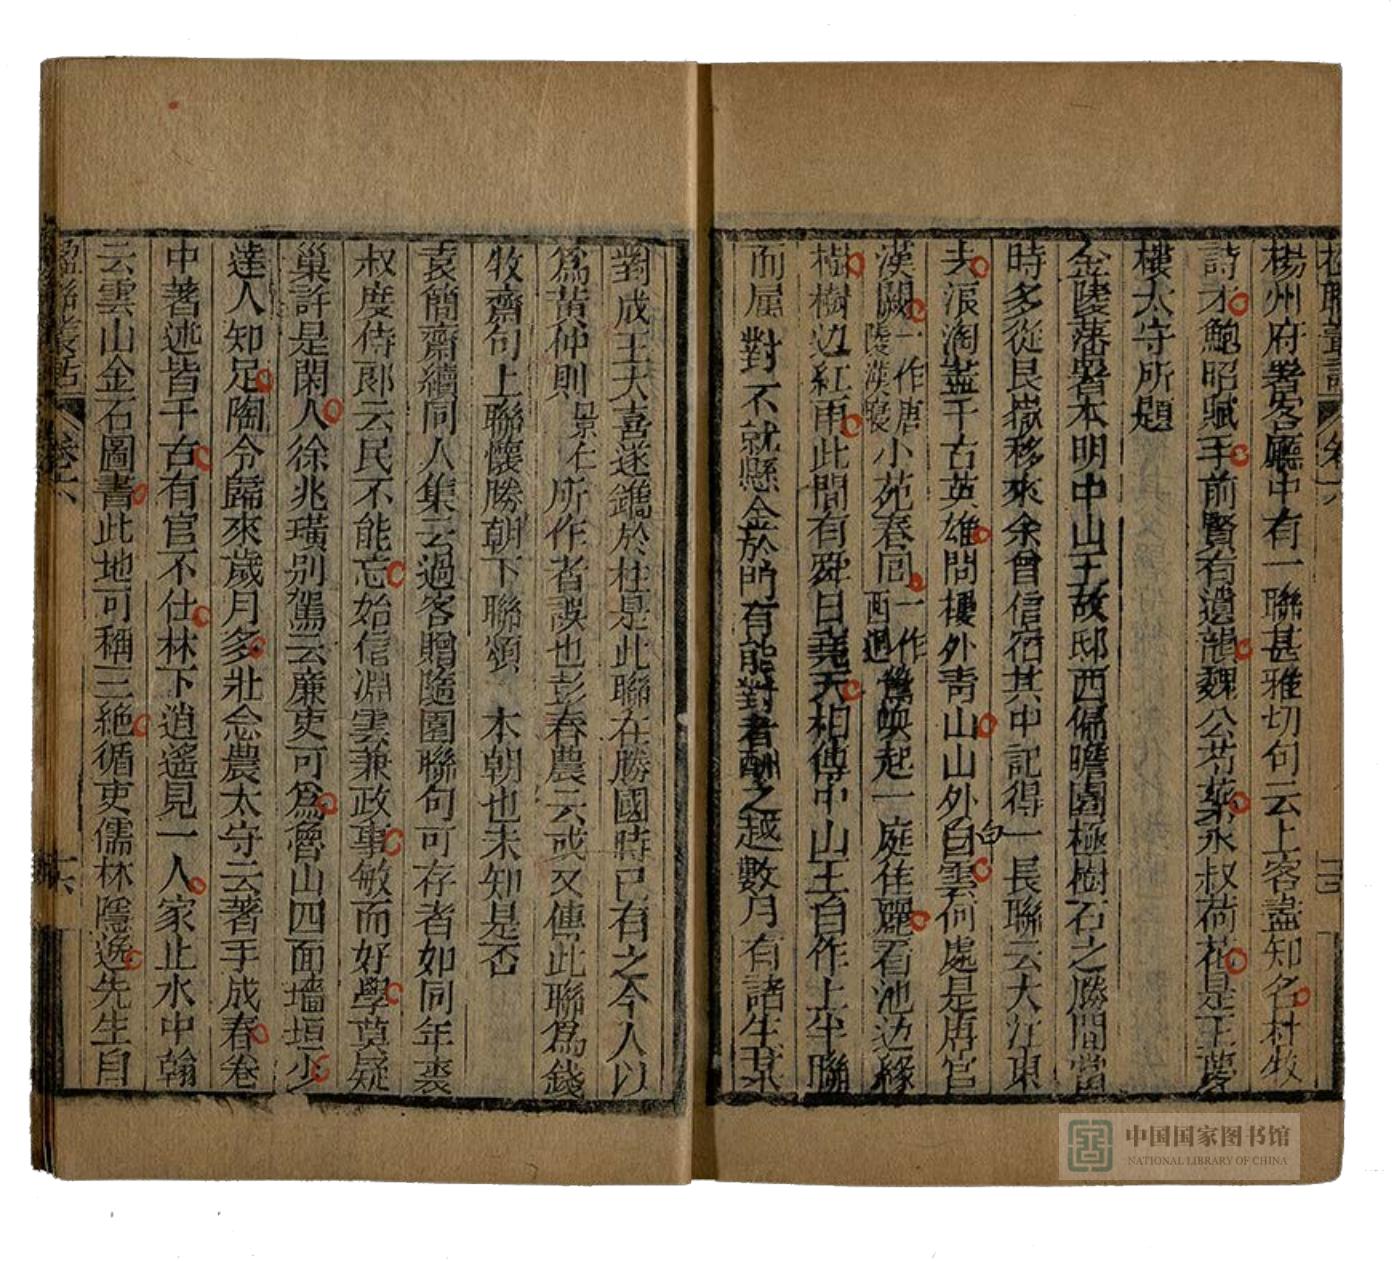 楹聯叢話 卷六
楊州府署客廳中有一聯甚雅切句云上客盡知名杜牧
詩才鮑昭賦手前賢有遺韻魏公芍藥永叔荷花是王夢
樓太守所題
金陵藩署本明中山王故邸西偏瞻園極樹石之勝間當
時多從艮嶽移來余曾信宿其中記得一長聯云大江東
去浪淘盡千古英雄問樓外青山山外白雲何處是唐宮
漢闕一作唐陵漢寢小苑春回一作西過鶯喚起一庭佳麗看池边綠
樹樹边紅雨此間有舜日堯天相傳中山王自作上半聯
而屬對不就懸金於門有能對者酬之越數月有諸生某
白
對成王大喜遂鐫於柱是此聯在勝國時已有之今人以
為黃仲則景仁所作者誤也彭春農云或又傳此聯為錢
牧齋句上聯懷勝朝下聯頌 本朝也未知是否
袁簡齋續同人集云過客贈隨園聯句可存者如同年裘
叔度侍郎云民不能忘始信淵雲兼政事敏而好學莫疑
巢許是閑人徐兆璜別駕云廉吏可為魯山四面墻垣少
達人知足陶令歸來歲月多壯念農太守云著手成春卷
中著述皆千古有官不仕林下逍遙見一人家止水中翰
云雲山金石圖書此地可稱三絕循吏儒林隱逸先生自
楹聯叢話 卷六 十六
中国国家图书馆
NATIONAL LIBRARY OF CHINA